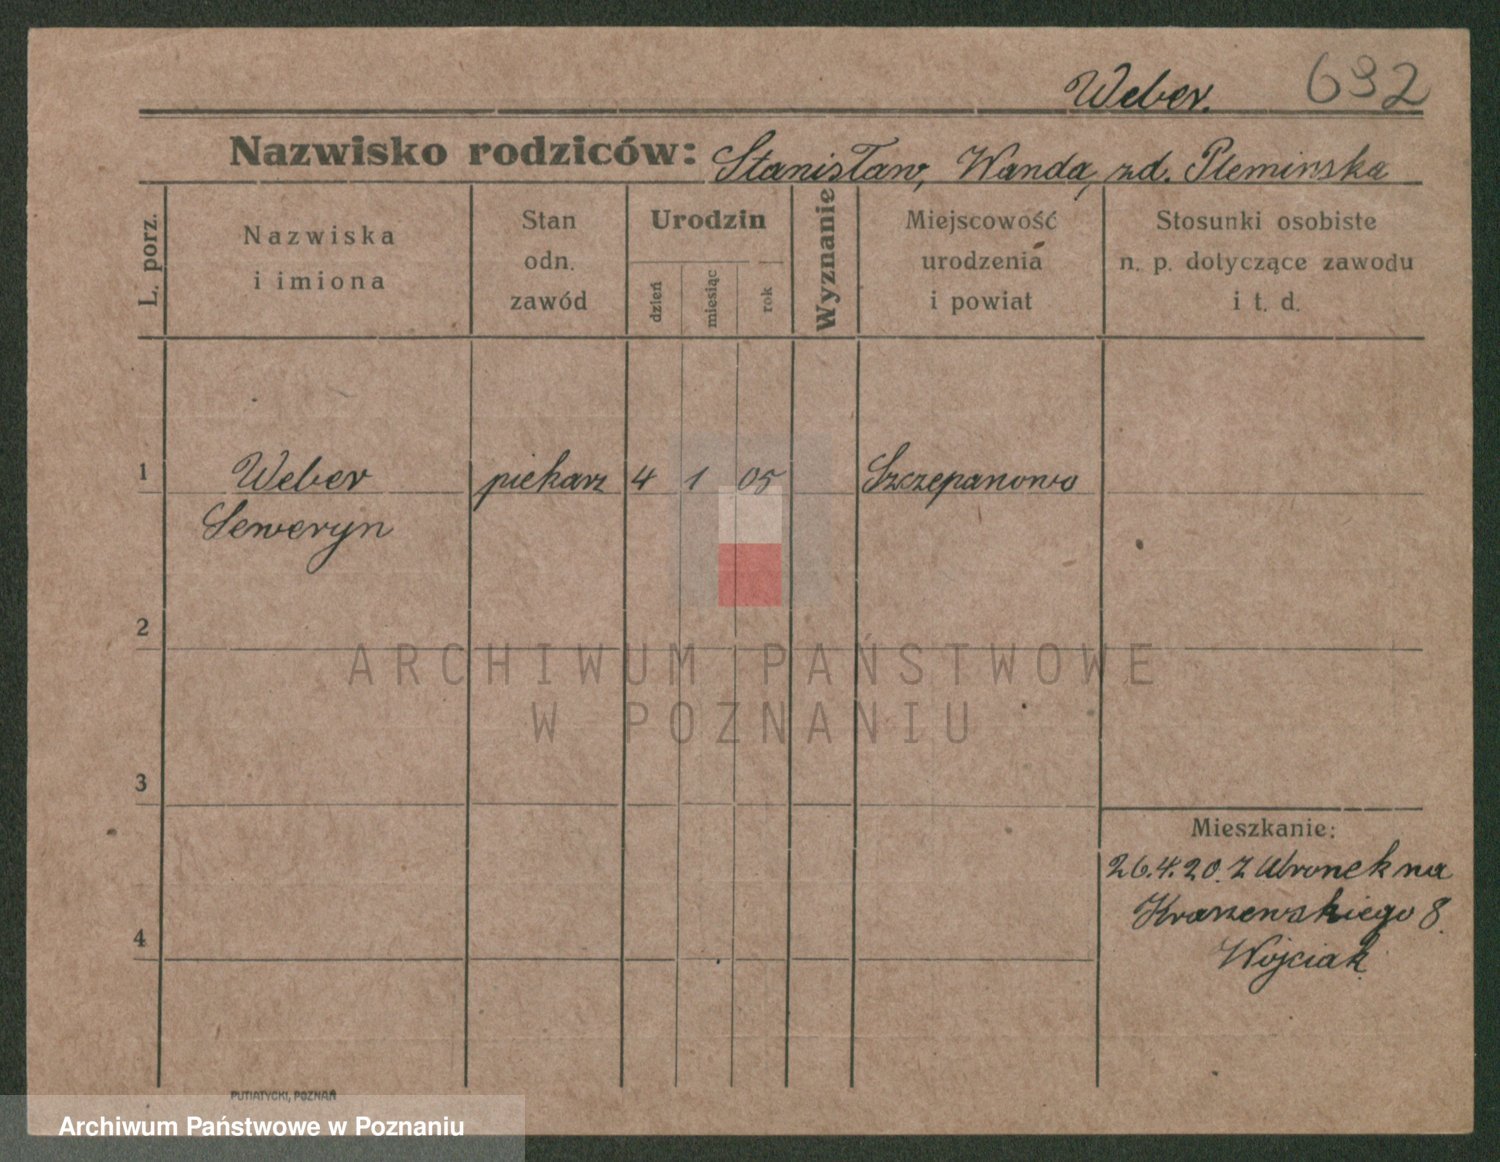 Weber. 692
Nazwisko rodziców: Stanisław, Wanda, zd. Plemińska
L. porz.
Nazwiska
i imiona
Stan
odn.
zawód
Urodzin
dzień
miesiąc
rok
Wyznanie
Miejscowość
urodzenia
i powiat
Stosunki osobiste
n. p. dotyczące zawodu
i t. d.
1 Weber piekarz 4 1 05 Szczepanowo
Seweryn
2
ARCHIWUM PAŃSTWOWE
W POZNANIU
3
Mieszkanie:
26.4.20. Z Wronek na
Kraszewskiego 8
4
Wojciak
PUTIATYCKI, POZNAŃ
Archiwum Państwowe w Poznaniu